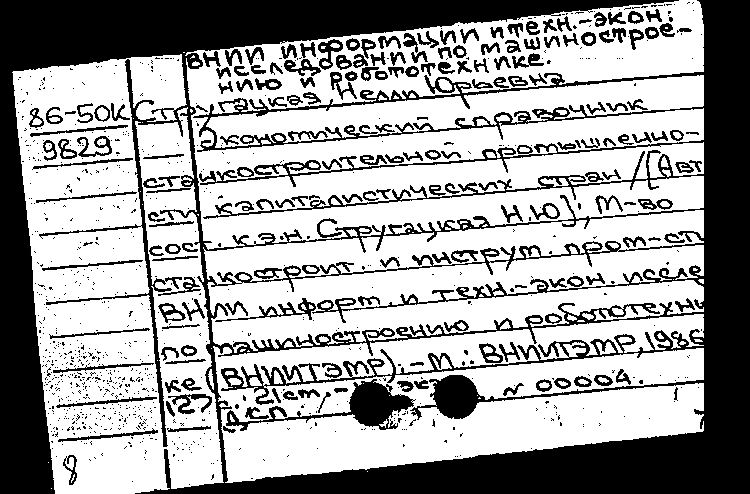 ВНИИ информации и техн.-экон.
исследований по машинострое-
нию и робототехнике.
86-50К Стругацкая, Нелли Юрьевна
9829. Экономический справочник
станкостроительной промышленно-
сти капиталистических стран / [Авт
сост. к.э.н. Стругацкая Н.Ю]; М-во
станкостроит. и инструм. пром-сти
ВНИИ информ. и техн.-экон. исслед
по машиностроению и робототехни
ке (ВНИИТЭМР). - М.: ВНИИТЭМР, 1986
127 с.; 21 см. - эк N 00004.
Дсп.
8